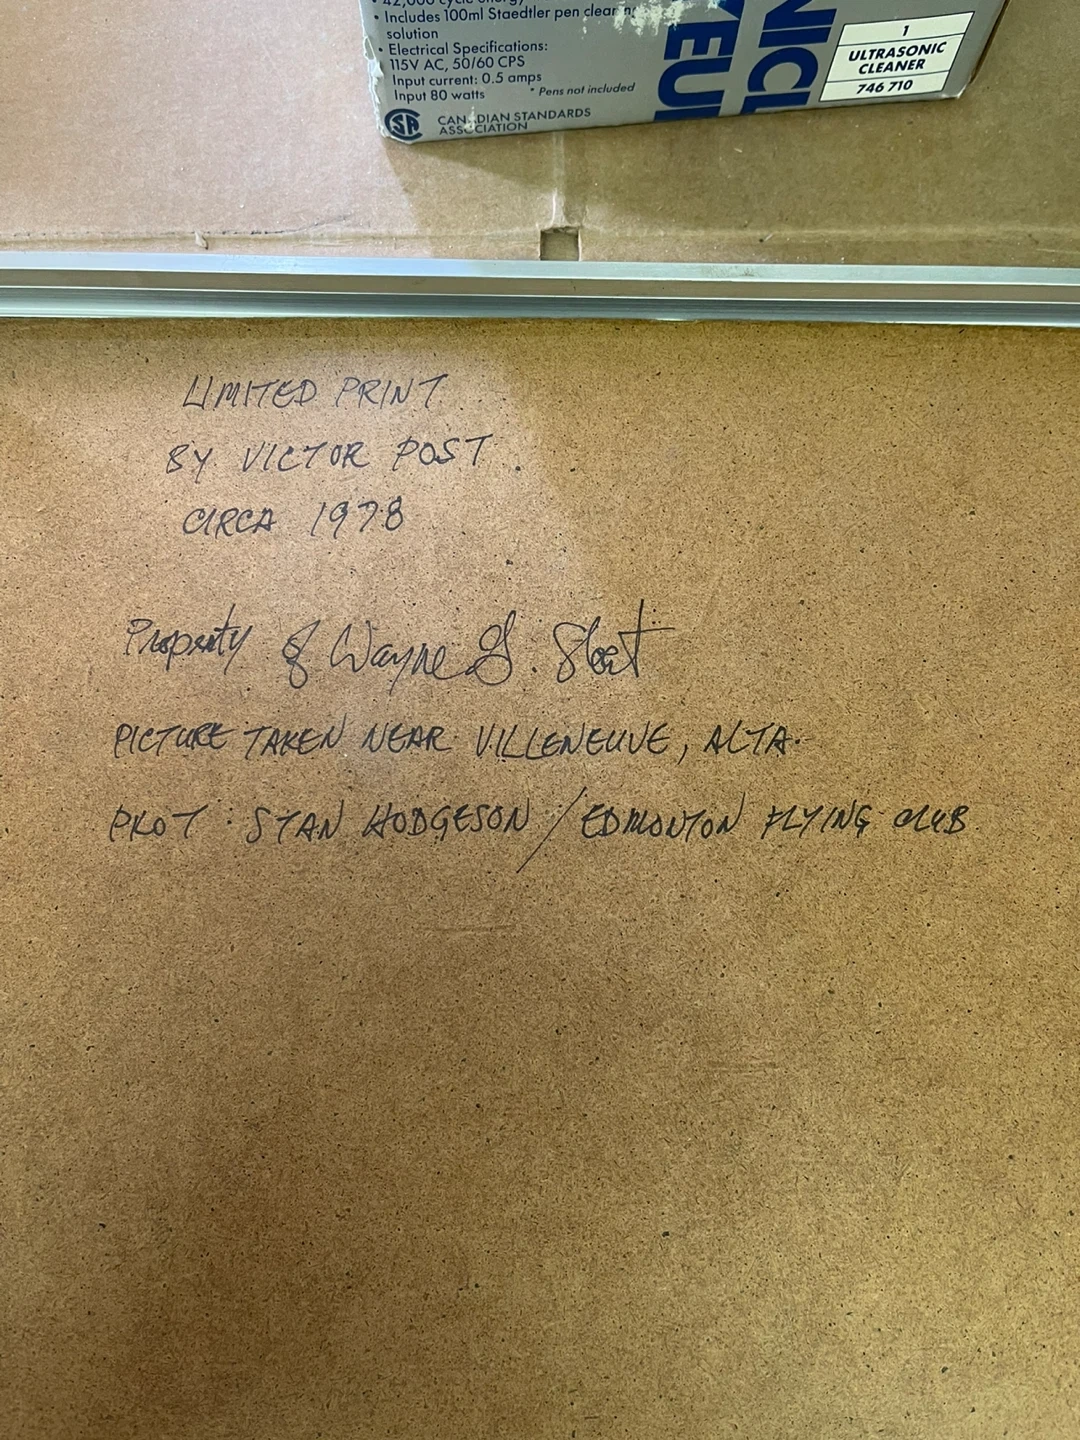 • 42,000 cycle energy
• Includes 100ml Staedtler pen cleaning
solution
• Electrical Specifications:
115V AC, 50/60 CPS
Input current: 0.5 amps
Input 80 watts
* Pens not included
CANADIAN STANDARDS
ASSOCIATION
1
ULTRASONIC
CLEANER
746 710
LIMITED PRINT
BY VICTOR POST
CIRCA 1978
Property of Wayne G.
PICTURE TAKEN NEAR VILLENEUVE, ALTA.
PILOT : STAN HODGESON / EDMONTON FLYING CLUB